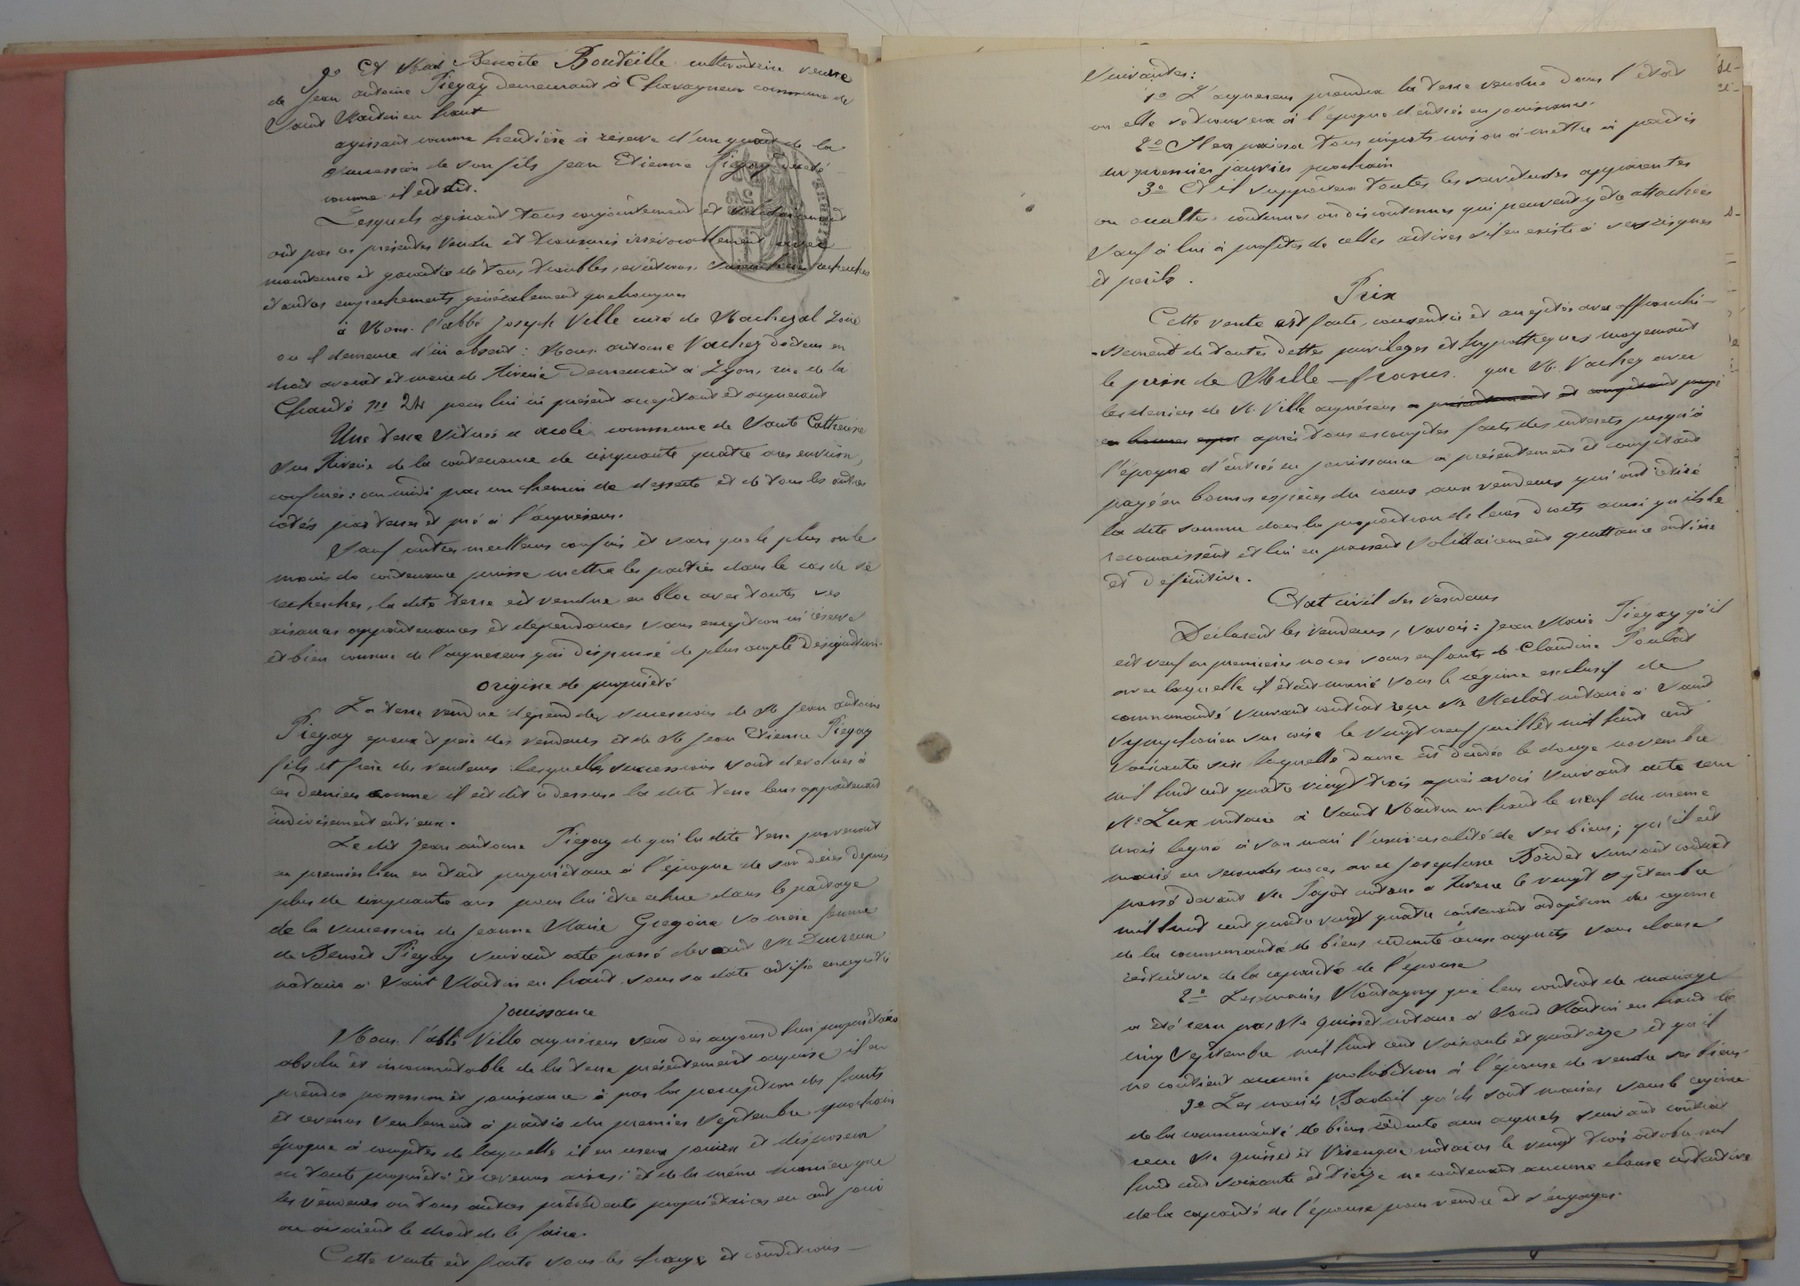 9º Et Mad. Benoite Bouteille cultivatrice veuve
de Jean antoine Piegay demeurant à Chavagneux commune de
Saint Martin en haut
agissant comme héritière à réserve d'un quart de la
succession de son fils Jean Etienne Piegay
comme il est dit.
Lesquels agissant tous conjointement et solidairement
ont par ces présentes vendu et transmis irrévocablement avec
maintenue et garantie de tous troubles, évictions,
et autres empechements généralement quelconques
à Mons. l'abbé Joseph Ville curé de Machezal Loire
où il demeure d'ici absent: Mons. antoine Vachez docteur en
droit avocat et maire de Riverie demeurant à Lyon, rue de la
Charité nº 24 pour lui ici présent acceptant et acquerant
Une terre située a commune de Sainte Catherine
sur Riverie de la contenance de cinquante quatre ares environ,
confinée: au midi par un chemin de desserte et de tous les autres
cotés par terres et pré à l'acquéreur.
Sauf autres meilleurs confins et sans que le plus ou le
moins de contenance puisse mettre les parties dans le cas de se
rechercher, la dite terre est vendue en bloc avec toutes ses
aisances appartenances et dépendances sans exception ni réserve
et bien connue de l'acquereur qui dispense de plus ample désignation.
Origine de propriété
La terre vendue dépend des successions de M. Jean antoine
Piegay époux et père des vendeurs et de M. Jean Etienne Piegay
fils et frère des vendeurs lesquelles successions sont dévolues à
ces derniers comme il est dit ci dessus la dite terre leur appartenant
indivisément entr'eux.
Le dit Jean antoine Piegay de qui la dite terre provenait
en premier lieu en était propriétaire à l'époque de son décès depuis
plus de cinquante ans pour lui être échue dans le partage
de la succession de Jeanne Marie Gregoire sa mère femme
de Benoit Piegay suivant acte passé devant Me
notaire à Saint Martin en haut sous sa date
Jouissance
Mons. l'abbé Ville acquéreur sera dès aujourd'hui propriétaire
absolu et incommutable de la terre présentement acquise, il en
prendra possession et jouissance par la perception des fruits
et revenus seulement à partir du premier Septembre prochain
époque à compter de laquelle il en usera jouira et disposera
en toute propriété et revenus ainsi et de la même manière que
les vendeurs ou tous autres précédents propriétaires en ont joui
ou avaient le droit de le faire.
Cette vente est faite sous les charges et conditions
suivantes:
1º L'acquereur prendra la terre vendue dans l'état
où elle se trouvera à l'époque d'entrée en jouissance.
2º Il en paiera tous impots mis ou à mettre à partir
du premier janvier prochain
3º Et il supportera toutes les servitudes apparentes
ou occultes, continues ou discontinues qui peuvent y être attachées
sauf à lui à profiter de celles actives s'il en existe à ses risques
et perils.
Prix
Cette vente est faite, consentie et acceptée avec affranchi-
-ssement de toutes dettes privileges et hypotheques moyennant
le prix de Mille francs. que M. Vachez avec
les deniers de M. Ville acquéreur a présentement et comptant payé
en bonnes après tous escomptes faits des intérets jusqu'à
l'époque d'entrée en jouissance a présentement et comptant
payé en bonnes espèces du cours aux vendeurs qui ont retiré
la dite somme dans la proportion de leurs droits ainsi qu'ils le
reconnaissent et lui en passent solidairement quittance entière
et définitive.
Etat civil des vendeurs
Déclarent les vendeurs, savoir: Jean Marie Piegay qu'il
est veuf en premières noces sans enfants de Claudine
avec laquelle il était marié sous le régime exclusif de
communauté suivant contrat reçu Me notaire à Saint
Symphorien sur coise le vingt neuf juillet mil huit cent
soixante six laquelle dame est décédée le douze novembre
mil huit cent quatre vingt trois après avoir suivant acte reçu
Me Lux notaire à Saint Martin en haut le neuf du meme
mois légué à son mari l'universalité de ses biens; qu'il est
marié en secondes noces avec Josephine suivant contrat
passé devant Me notaire a Riverie le vingt septembre
mil huit cent quatre vingt quatre contenant adoption du régime
de la communauté de biens réduite aux acquets sans clause
restrictive de la capacité de l'épouse
2º Les mariés Montagny que leur contrat de mariage
a été reçu par Me Guinet notaire à Saint Martin en haut le
cinq Septembre mil huit cent soixante et quatorze et qu'il
ne contient aucune prohibition à l'épouse de vendre ses biens.
3º Les mariés qu'ils sont mariés sous le regime
de la communauté de biens réduite aux acquets suivant contrat
reçu Me Guinet et notaires le vingt trois octobre mil
huit cent soixante et treize ne contenant aucune clause restrictive
de la capacité de l'épouse pour vendre et s'engager.